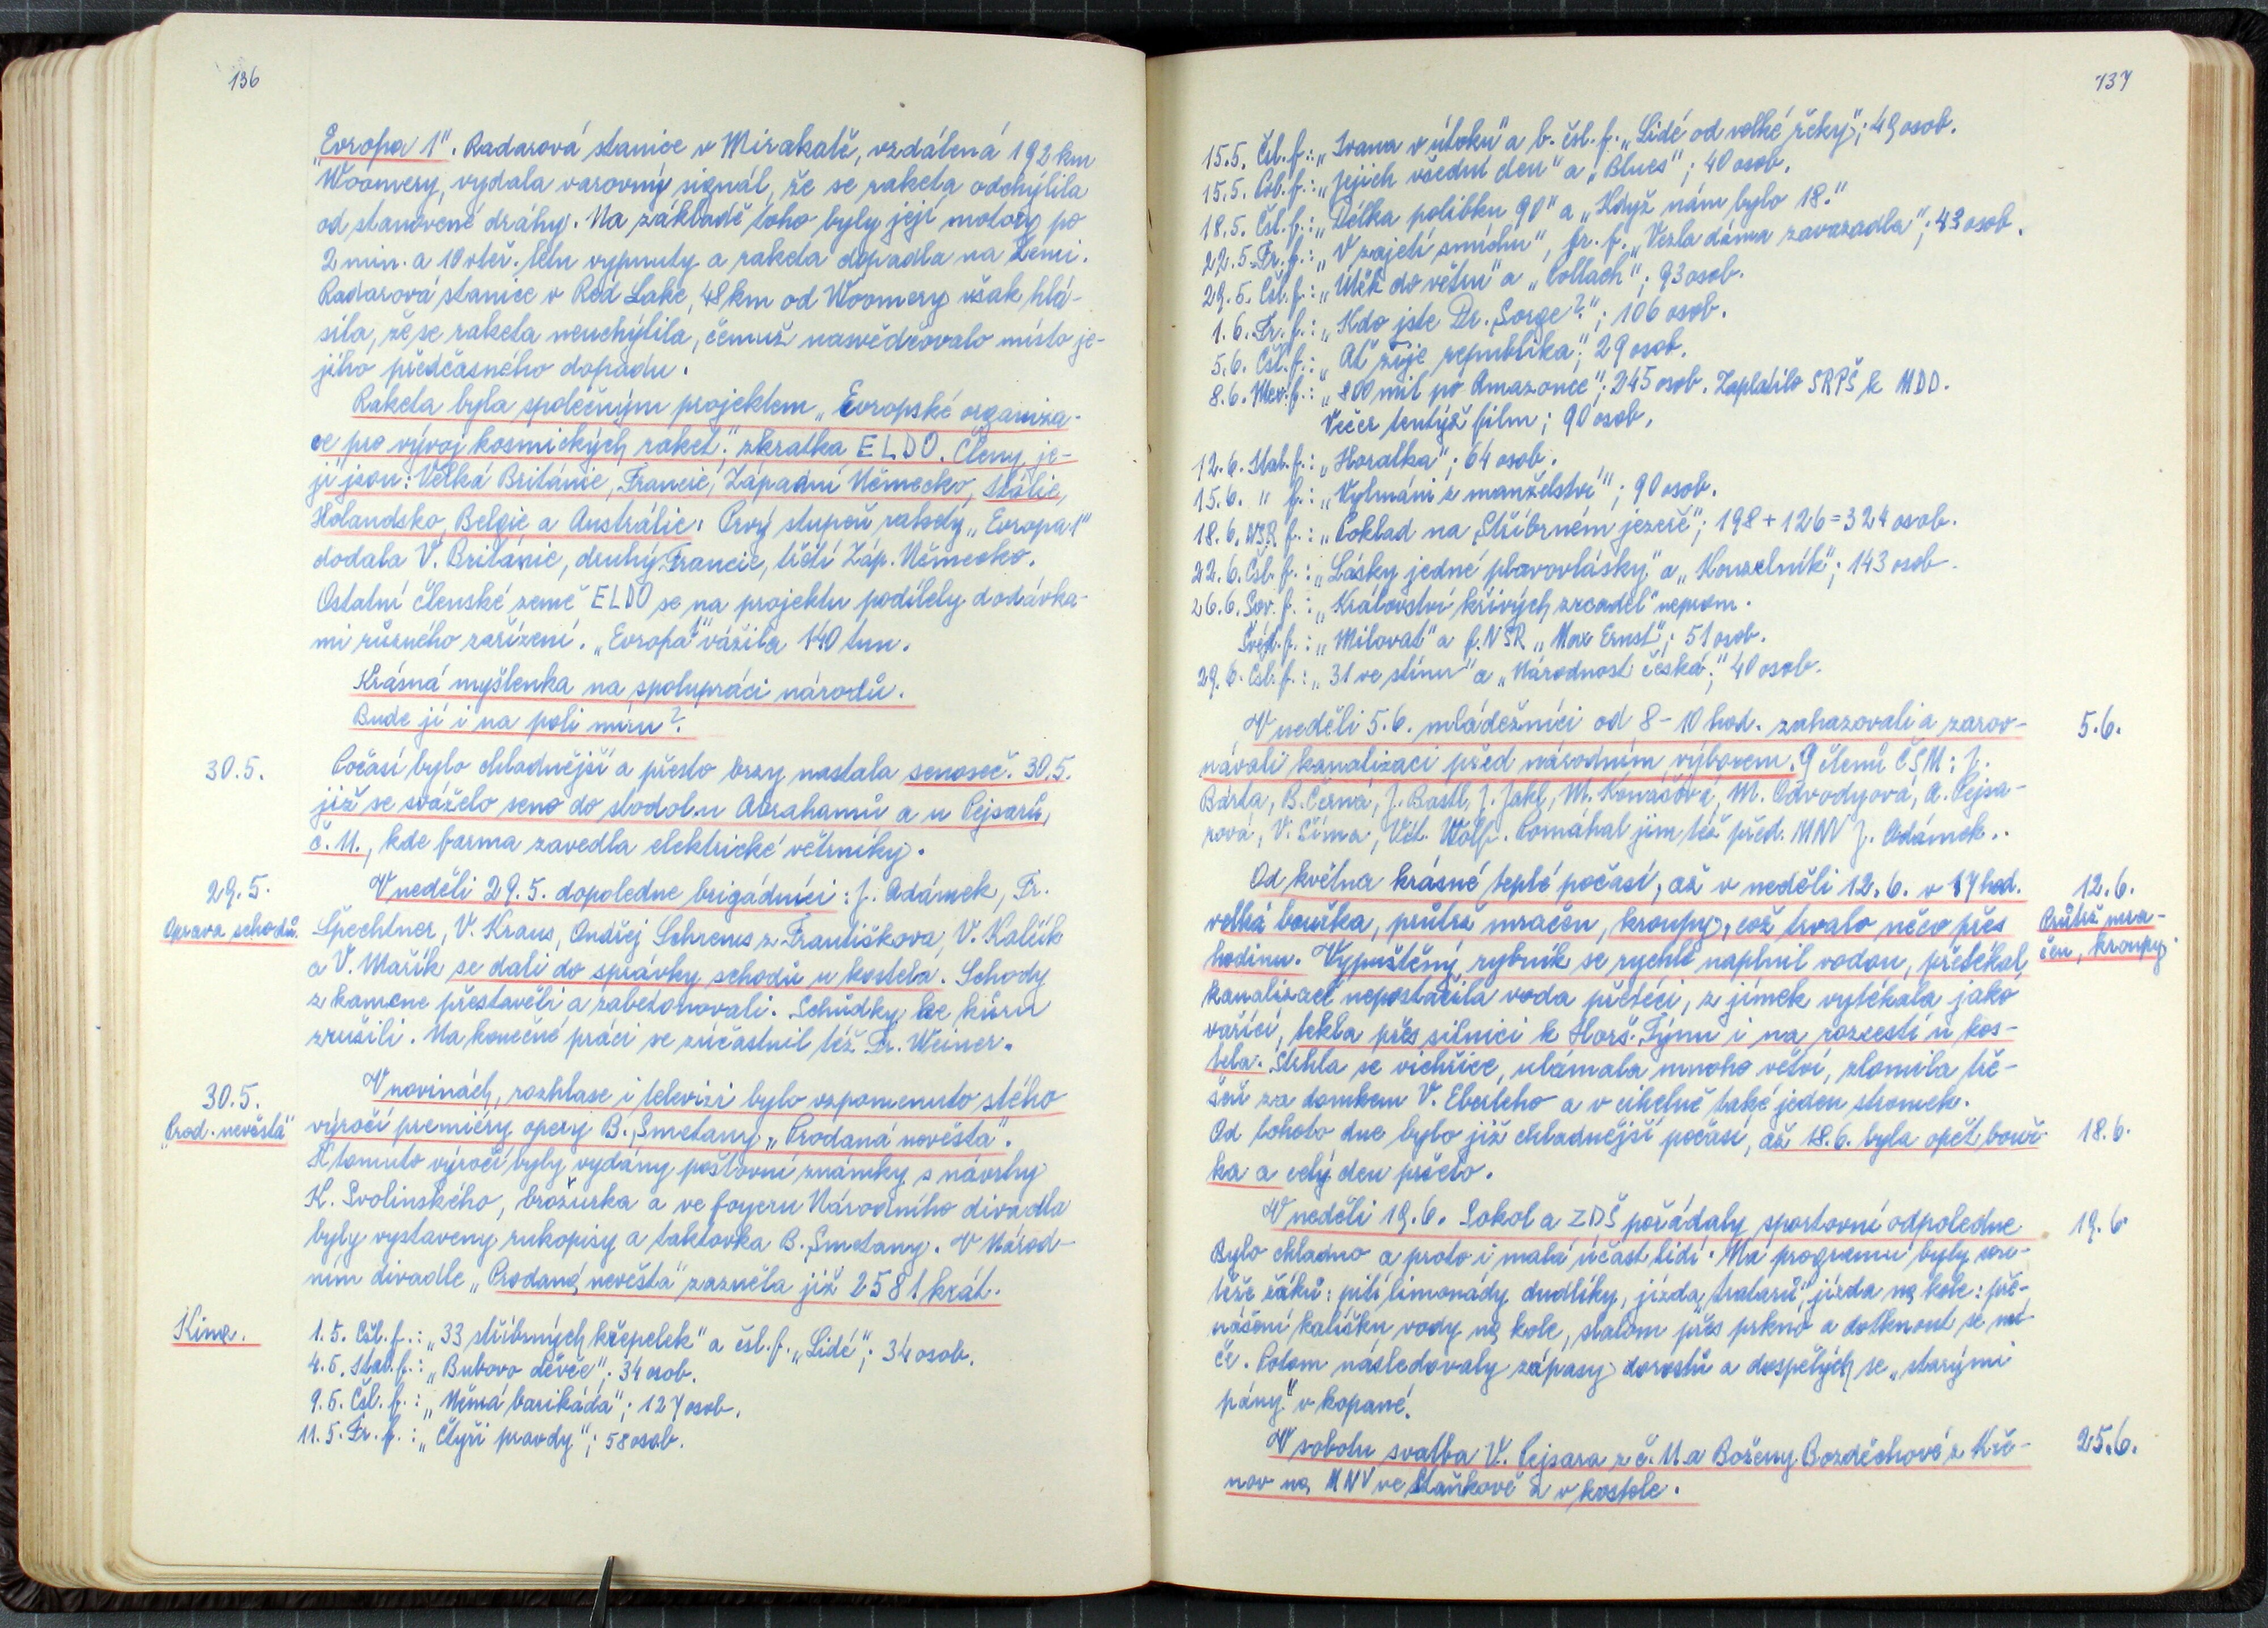 136
„Evropa 1". Radarová stanice v Mirakatě, vzdálená 192 km
Woomery, vydala varovný signál, že se raketa odchýlila
od stanovené dráhy. Na základě toho byly její motory po
2 min. a 10 vteř. letu vypnuty a raketa dopadla na Zemi.
Radarová stanice v Red Lake, 48 km od Woomery však hlá-
sila, že se raketa neuchýlila, čemuž nasvědčovalo místo je-
jího předčasného dopadu.
Raketa byla společným projektem „Evropské organiza-
ce pro vývoj kosmických raket", zkratka ELDO. Členy je-
jí jsou: Velká Británie, Francie, Západní Německo, Itálie,
Holandsko, Belgie a Austrálie. Prvý stupeň rakety „Evropa 1"
dodala V. Británie, druhý Francie, třetí Záp. Německo.
Ostatní členské země ELDO se na projektu podílely dodávka-
mi různého zařízení. „Evropa 1" vážila 140 tun.
Krásná myšlenka na spolupráci národů.
Bude jí i na poli míru?
30.5.
Počasí bylo chladnější a přesto brzy nastala senoseč. 30.5.
již se sváželo seno do stodol u Abrahamů a u Pejsarů,
č. 11., kde farma zavedla elektrické větrníky.
29.5.
Oprava schodů.
V neděli 29.5. dopoledne brigádníci: J. Adámek, Fr.
Špechtner, V. Kraus, Ondřej Schrems z Františkova, V. Kalčík
a V. Mařík se dali do správky schodů u kostela. Schody
z kamene přestavěli a zabetonovali. Schůdky ke kůru
zrušili. Na konečné práci se zúčastnil též Fr. Weiner.
30.5.
„Prod. nevěsta"
V novinách, rozhlase i televizi bylo vzpomenuto stého
výročí premiéry opery B. Smetany „Prodaná nevěsta".
K tomuto výročí byly vydány poštovní známky s návrhy
K. Svolinského, brožurka a ve foyeru Národního divadla
byly vystaveny rukopisy a taktovka B. Smetany. V Národ-
ním divadle „Prodaná nevěsta" zazněla již 2581 krát.
Kino.
1.5. Čsl. f.: „33 stříbrných křepelek" a čsl. f. „Lidé"; 34 osob.
4.5. Ital. f.: „Bubovo děvče"; 34 osob.
9.5. Čsl. f.: „Němá barikáda"; 127 osob.
11.5. Fr. f.: „Čtyři pravdy"; 58 osob.
137
15.5. Čsl. f.: „Ivana v útoku" a b. čsl. f. „Lidé od velké řeky"; 49 osob.
15.5. Pol. f.: „Jejich všední den" a „Blues"; 40 osob.
18.5. Čsl. f.: „Délka polibku 90" a „Když nám bylo 18."
22.5. Fr. f.: „V zajetí smíchu", fr. f. „Vezla dáma zavazadla"; 43 osob.
29.5. Čsl. f.: „Útěk do větru" a „Potlach"; 93 osob.
1.6. Fr. f.: „Kdo jste Dr. Sorge?"; 106 osob.
5.6. Čsl. f.: „Ať žije republika"; 29 osob.
8.6. Mex. f.: „800 mil po Amazonce"; 245 osob. Zaplatilo SRPŠ k MDD.
Večer tentýž film; 90 osob.
12.6. Ital. f.: „Horalka"; 64 osob.
15.6. " f.: „Vylmáni z manželství"; 90 osob.
18.6. NSR f.: „Poklad na Stříbrném jezeře"; 198 + 126 = 324 osob.
22.6. Čsl. f.: „Lásky jedné plavovlásky" a „Kouzelník"; 143 osob.
26.6. Sov. f.: „Království křivých zrcadel" neprom.
Švéd. f.: „Milovat" a f. NSR „Max Ernst"; 51 osob.
29.6. Čsl. f.: „31 ve stínu" a „Národnost česká"; 40 osob.
V neděli 5.6. mládežníci od 8 - 10 hod. zahazovali a zarov-
5.6.
návali kanalizaci před národním výborem. 9 členů ČSM: J.
Bárta, B. Černá, J. Bastl, J. Jakl, M. Konášová, M. Odvodyová, A. Pejsa-
rová, V. Šíma, Vít. Wolf. Pomáhal jim též před. MNV J. Adámek.
Od května krásné teplé počasí, až v neděli 12.6. v 17 hod.
12.6.
velká bouřka, průtrž mračen, kroupy, což trvalo něco přes
Průtrž mra-
čen, kroupy.
hodinu. Vypuštěný rybník se rychle naplnil vodou, přetékal,
kanalizací nepostačila voda přetéci, z jímek vytékala jako
vařící, tekla přes silnici k Horš. Týnu i na rozcestí u kos-
tela. Strhla se vichřice, ulámala mnoho větví, zlomila tře-
šeň za domkem V. Eberleho a v cihelně také jeden stromek.
Od tohoto dne bylo již chladnější počasí, až 18.6. byla opět bouř-
18.6.
ka a celý den pršelo.
V neděli 19.6. Sokol a ZDŠ pořádaly sportovní odpoledne
19.6.
Bylo chladno a proto i malá účast lidí. Na programu byly sou-
těže žáků: pití limonády dudlíky, jízda „trakařů", jízda na kole: pře-
nášení kalíšku vody na kole, slalom přes prkno a dotknout se mí-
če. Potom následovaly zápasy dorostů a dospělých se „starými
pány" v kopané.
V sobotu svatba V. Pejsara z č. 11 a Boženy Bozděchové z Kře-
25.6.
nov na MNV ve Staňkově a v kostele.